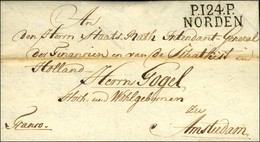 P.124.P.
NORDEN
An
den Herrn Staats Rath Intendant General
der Finanzien en van de Schatkist in
Holland
Herrn Gogel
Hoch- und Wohlgebornen
zu
Franco.
Amsterdam